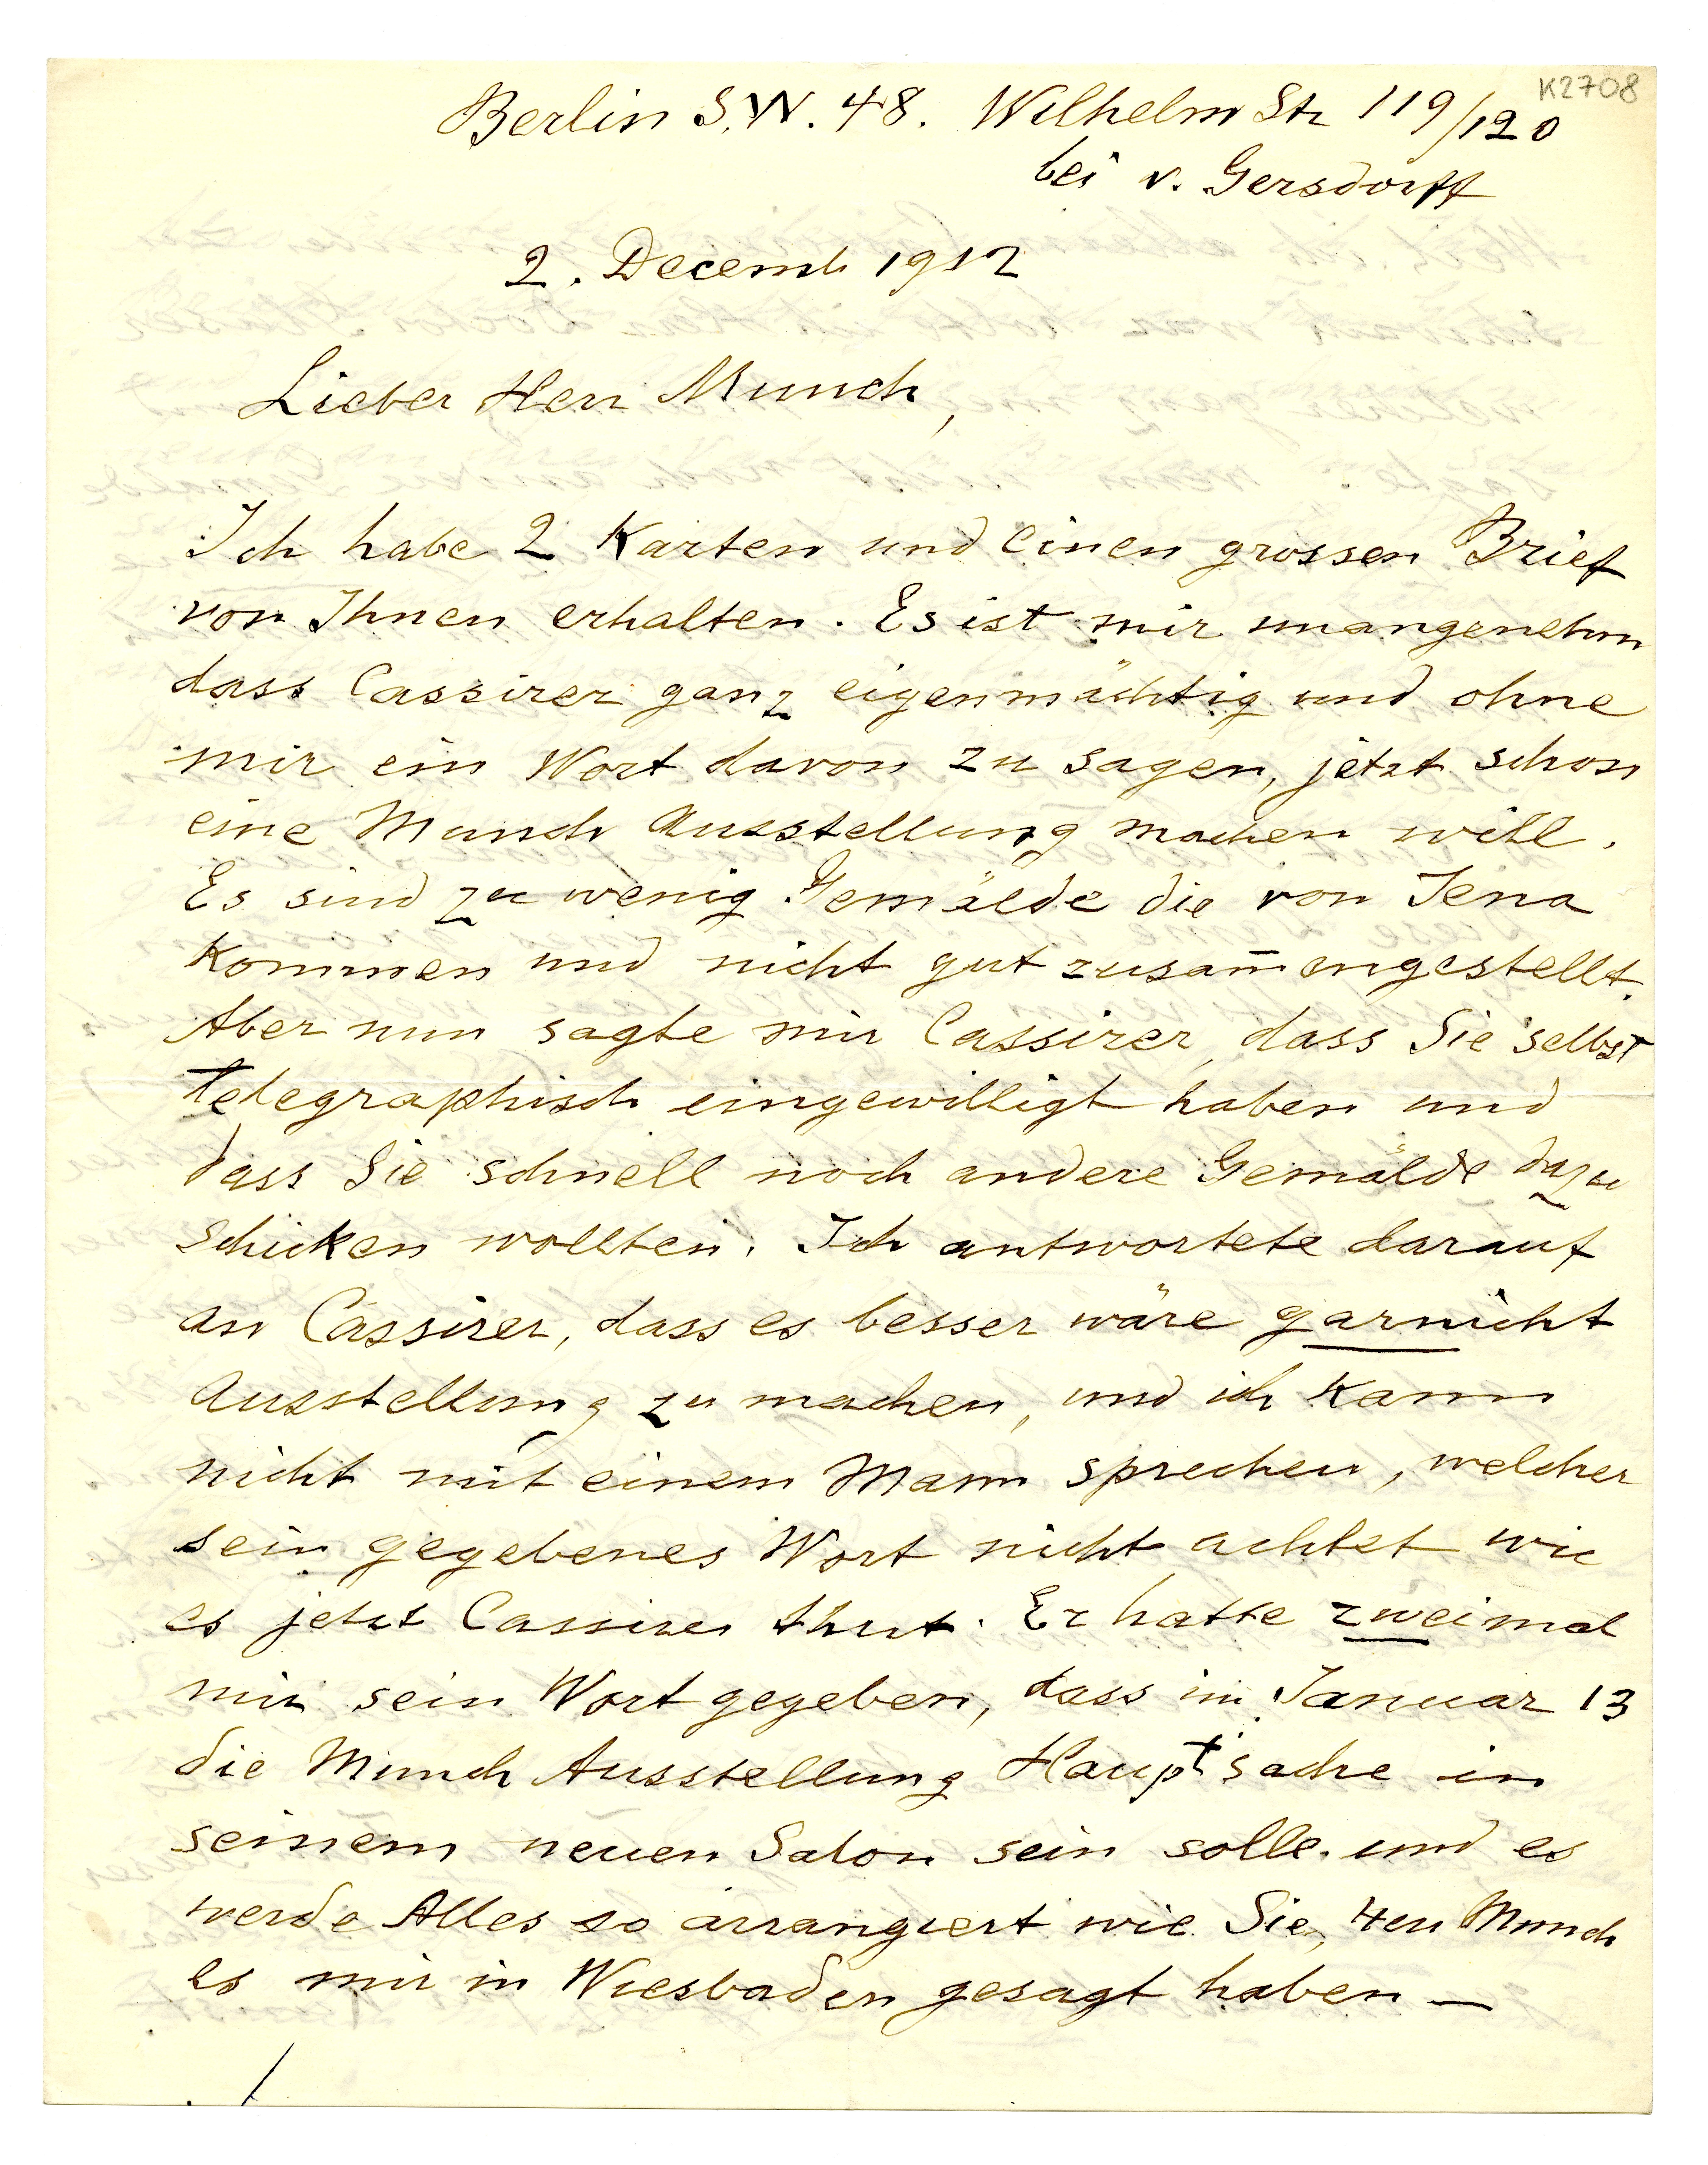 K2708
Berlin S.W. 48. Wilhelm Str 119/120
bei v. Gersdorff
2. Decemb 1912
Lieber Herr Munch,
Ich habe 2 Karten und einen grossen Brief
von Ihnen erhalten. Es ist mir unangenehm
dass Cassirer ganz eigenmächtig und ohne
mir ein Wort davon zu sagen, jetzt schon
eine Munch Ausstellung machen will.
Es sind zu wenig Gemälde die von Jena
kommen und nicht gut zusam̅engestellt.
Aber nun sagte mir Cassirer, dass Sie selbst
telegraphisch eingewilligt haben und
dass Sie schnell noch andere Gemälde dazu
schicken wollten. Ich antwortete darauf
an Cassirer, dass es besser wäre garnicht
Ausstellung zu machen, und ich kann
nicht mit einem Mann sprechen, welcher
sein gegebenes Wort nicht achtet wie
es jetzt Cassirer thut. Er hatte zweimal
mir sein Wort gegeben, dass im Januar 13
die Munch Ausstellung Hauptsache in
seinem neuen Salon sein solle und es
werde Alles so arrangiert wie Sie, Herr Munch
es mir in Wiesbaden gesagt haben —
./